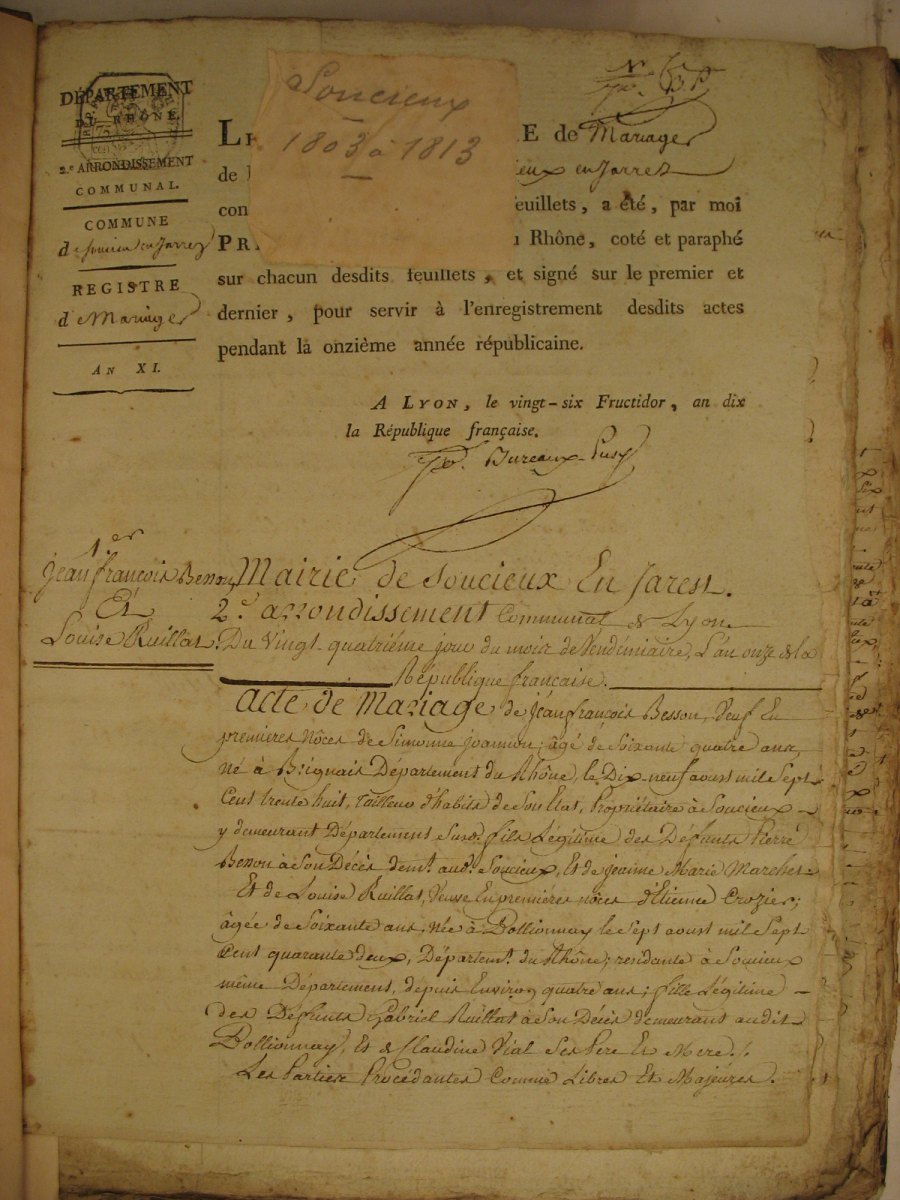 DÉPARTEMENT
DU RHÔNE.
2.e ARRONDISSEMENT
COMMUNAL.
COMMUNE
de Soucieu en Jarrez
REGISTRE
de Mariages
AN XI.
Soucieux
1803 à 1813
N.
B P
LE
E de Mariages
de
eux en Jarrez
con
feuillets, a été, par moi
PRÉ
u Rhône, coté et paraphé
sur chacun desdits feuillets, et signé sur le premier et
dernier, pour servir à l'enregistrement desdits actes
pendant la onzième année républicaine.
A LYON, le vingt-six Fructidor, an dix
la République française.
Bureaux-Pusy
1.er
Jean françois Besson
Et
Louise Ruillat.
Mairie de Soucieux En Jarest.
2.e arrondissement Communal de Lyon
Du Vingt-quatrième jour du mois de Vendémiaire, L'an onze de la
République française.
Acte de Mariage de Jean françois Besson, Veuf En
premieres Nôces de Simonne joannon; âgé de Soixante quatre ans,
né à Brignais Département du Rhône, le Dix-neuf aoust mil Sept
Cent trente huit, tailleur d'habits de Son Etat, Propriétaire à Soucieux
y demeurant Département Susd. fils Légitime des Defunts Pierre
Besson à Son Décès demt. aud. Soucieux, Et de jeanne Marie Marchet
Et de Louise Ruillat, Veuve En premières nôces d'Etienne Crozier;
âgée de Soixante ans, Née à Pollionnay le Sept aoust mil Sept
Cent quarante deux, Départemt. du Rhône; residante à Soucieux
même Département, depuis Environ quatre ans; fille Légitime
des Defunts Gabriel Ruillat à Son Décès demeurant audit
Pollionnay, Et de Claudine Vial Ses Pere Et Mere./.
Les Parties Procédantes Comme Libres Et Majeures.